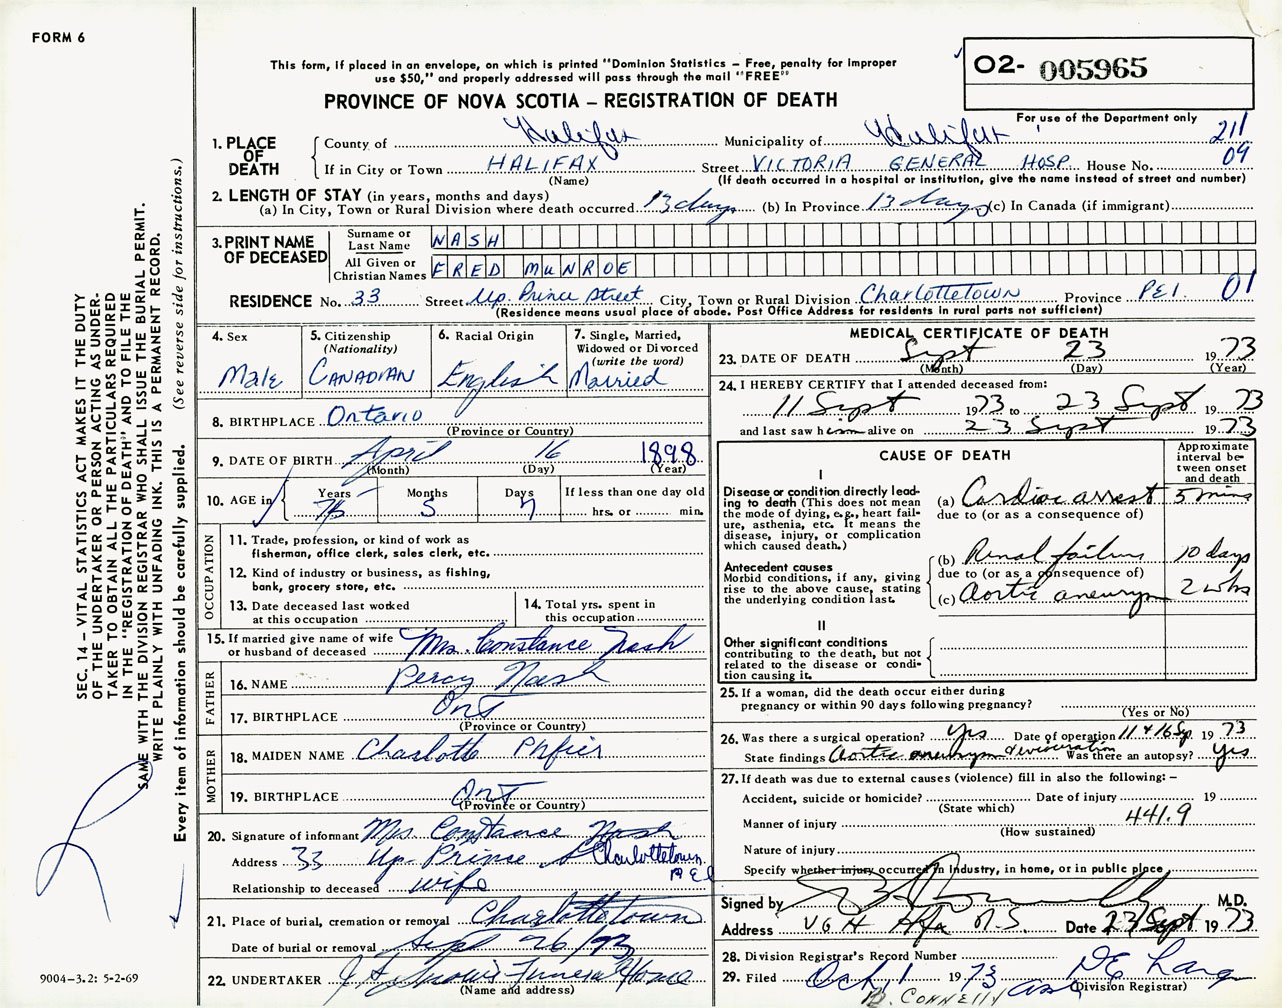 FORM 6
This form, if placed in an envelope, on which is printed "Dominion Statistics – Free, penalty for improper
use $50," and properly addressed will pass through the mail "FREE"
PROVINCE OF NOVA SCOTIA – REGISTRATION OF DEATH
02- 005965
For use of the Department only
211
09
1. PLACE OF DEATH
County of Halifax Municipality of Halifax
If in City or Town HALIFAX Street VICTORIA GENERAL HOSP. House No.
(Name) (If death occurred in a hospital or institution, give the name instead of street and number)
2. LENGTH OF STAY (in years, months and days)
(a) In City, Town or Rural Division where death occurred 13 days (b) In Province 13 days (c) In Canada (if immigrant)
3. PRINT NAME OF DECEASED
Surname or Last Name NASH
All Given or Christian Names FRED MUNROE
RESIDENCE No. 33 Street Up. Prince Street City, Town or Rural Division Charlottetown Province PEI. 01
(Residence means usual place of abode. Post Office Address for residents in rural parts not sufficient)
4. Sex Male
5. Citizenship (Nationality) CANADIAN
6. Racial Origin English
7. Single, Married, Widowed or Divorced (write the word) Married
8. BIRTHPLACE Ontario
(Province or Country)
9. DATE OF BIRTH April 16 1898
(Month) (Day) (Year)
10. AGE in Years 75 Months 5 Days 7 If less than one day old hrs. or min.
OCCUPATION
11. Trade, profession, or kind of work as
fisherman, office clerk, sales clerk, etc.
12. Kind of industry or business, as fishing,
bank, grocery store, etc.
13. Date deceased last worked
at this occupation
14. Total yrs. spent in
this occupation
15. If married give name of wife
or husband of deceased Mrs. Constance Nash
FATHER
16. NAME Percy Nash
17. BIRTHPLACE Ont
(Province or Country)
MOTHER
18. MAIDEN NAME Charlotte
19. BIRTHPLACE Ont
(Province or Country)
20. Signature of informant Mrs. Constance Nash
Address 33 Up. Prince St Charlottetown P.E.I
Relationship to deceased wife
21. Place of burial, cremation or removal Charlottetown
Date of burial or removal Sept 26/73
22. UNDERTAKER Snow's Funeral Home
(Name and address)
MEDICAL CERTIFICATE OF DEATH
23. DATE OF DEATH Sept 23 1973
(Month) (Day) (Year)
24. I HEREBY CERTIFY that I attended deceased from:
11 Sept 1973 to 23 Sept 1973
and last saw him alive on 23 Sept 1973
CAUSE OF DEATH
Approximate interval between onset and death
I
Disease or condition directly lead-
ing to death (This does not mean
the mode of dying, e.g., heart fail-
ure, asthenia, etc. It means the
disease, injury, or complication
which caused death.)
(a) Cardiac arrest 5 mins
due to (or as a consequence of)
Antecedent causes
Morbid conditions, if any, giving
rise to the above cause, stating
the underlying condition last.
(b) Renal failure 10 days
due to (or as a consequence of)
(c) Aortic aneurysm 2 wks
II
Other significant conditions
contributing to the death, but not
related to the disease or condi-
tion causing it.
25. If a woman, did the death occur either during
pregnancy or within 90 days following pregnancy?
(Yes or No)
26. Was there a surgical operation? Yes Date of operation 11 & 16 Sp. 1973
State findings Aortic aneurysm Was there an autopsy? Yes
27. If death was due to external causes (violence) fill in also the following: –
Accident, suicide or homicide? Date of injury 19
(State which)
Manner of injury 441.9
(How sustained)
Nature of injury
Specify whether injury occurred in Industry, in home, or in public place
Signed by M.D.
Address VGH Hfx N.S. Date 23/Sept 1973
28. Division Registrar's Record Number
29. Filed Oct 1 1973
(Division Registrar)
CONNELLY
SEC. 14 – VITAL STATISTICS ACT MAKES IT THE DUTY
OF THE UNDERTAKER OR PERSON ACTING AS UNDER-
TAKER TO OBTAIN ALL THE PARTICULARS REQUIRED
IN THE "REGISTRATION OF DEATH" AND TO FILE THE
SAME WITH THE DIVISION REGISTRAR WHO SHALL ISSUE THE BURIAL PERMIT.
WRITE PLAINLY WITH UNFADING INK. THIS IS A PERMANENT RECORD.
Every item of information should be carefully supplied. (See reverse side for instructions.)
9004-3.2: 5-2-69